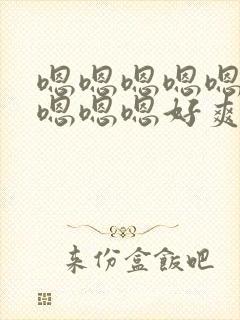 嗯嗯嗯嗯嗯
嗯嗯嗯好爽
来份盒饭吧